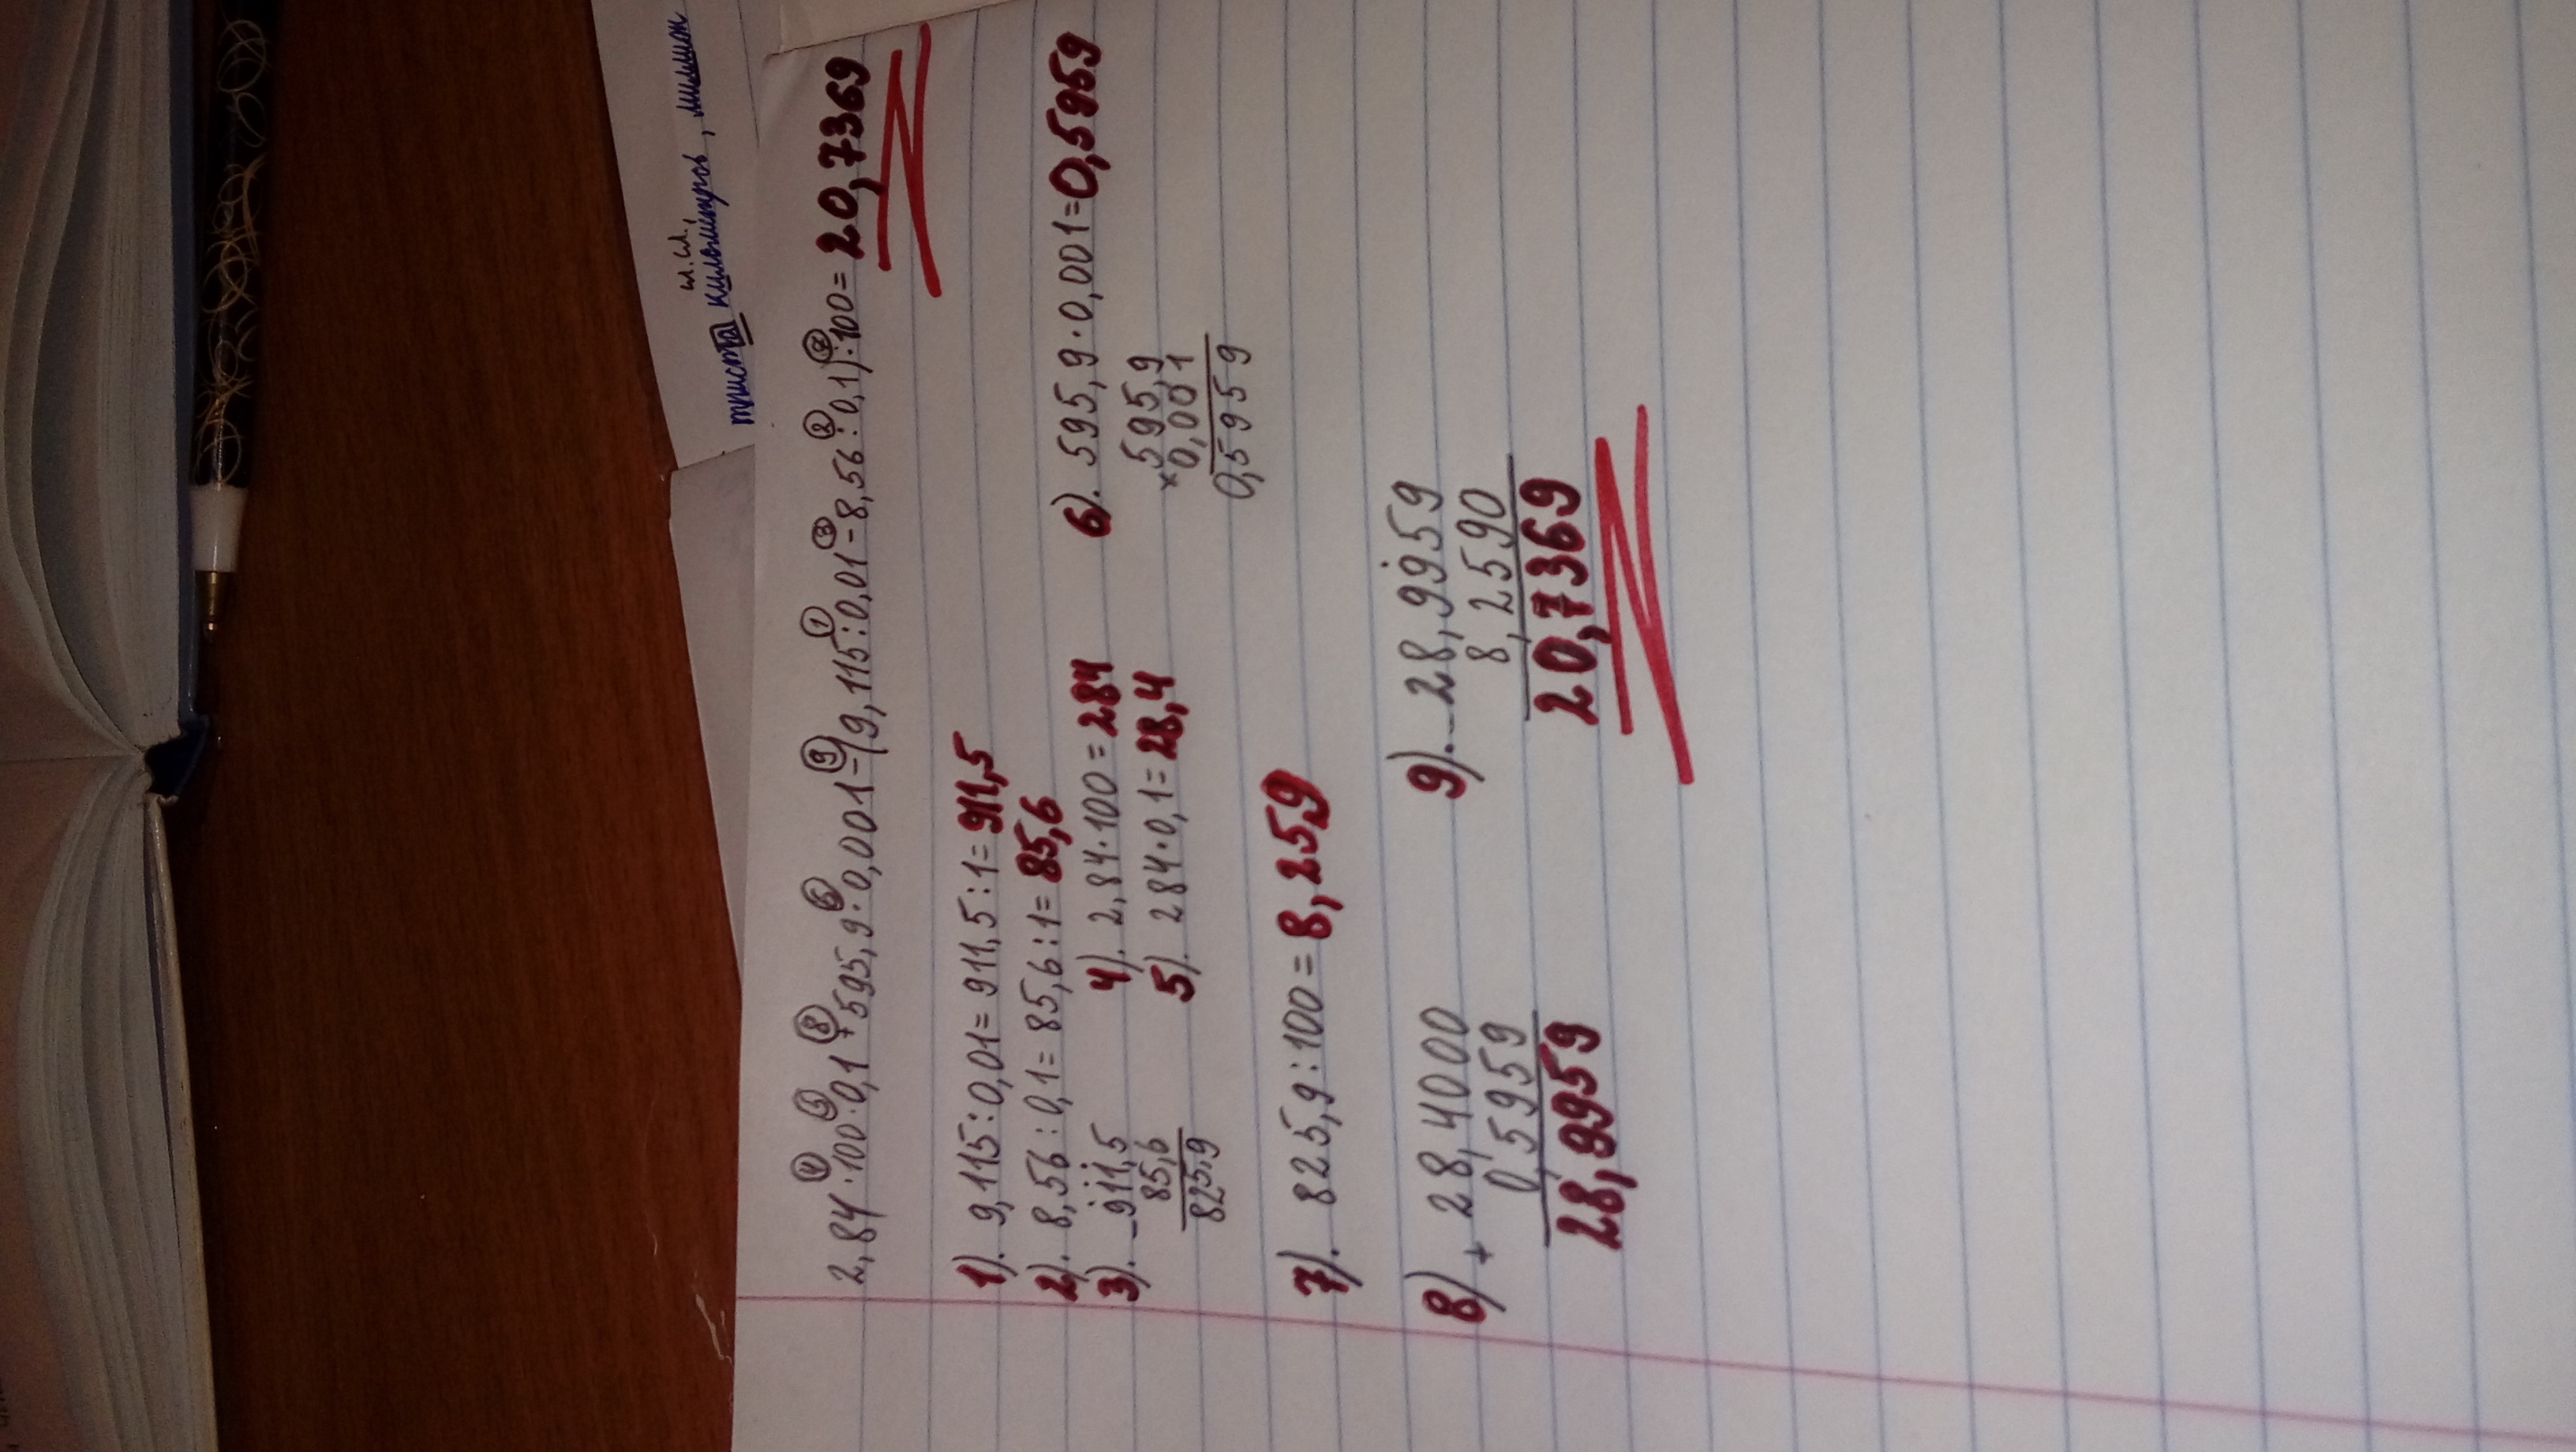 м.ч.,
триста километров, миллион
2,84 · 100 · 0,1 + 595,9 · 0,001 - (9,115 : 0,01 - 8,56 : 0,1) : 100 = 20,7369
4 5 8 6 9 1 3 2 7
1). 9,115 : 0,01 = 911,5 : 1 = 911,5
2). 8,56 : 0,1 = 85,6 : 1 = 85,6
3). - 911,5
85,6
825,9
4). 2,84 · 100 = 284
5). 284 · 0,1 = 28,4
6). 595,9 · 0,001 = 0,5959
× 595,9
0,001
0,5959
7). 825,9 : 100 = 8,259
8) + 28,4000
0,5959
28,9959
9). - 28,9959
8,2590
20,7369